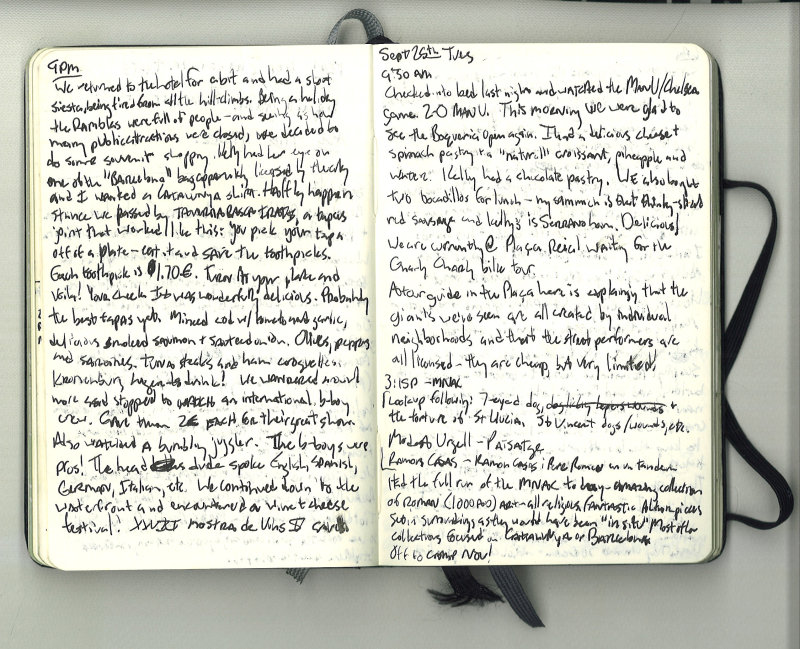 9pm
We returned to the hotel for a bit and had a short
siesta, being tired from all the hill climbs. Being a holiday
the Ramblas were full of people - and seeing as how
many public attractions were closed, we decided to
do some souvenir shopping. Kelly had her eye on
one of the "Barcelona" bags apparently licensed by the city
and I wanted a Catalunya shirt. Half by happen
stance we passed by a tapas
joint that worked like this: you pick your tapa
off of a plate - eat it and save the toothpicks.
Each toothpick is 1.70€. Turn in your plate and
Voila! Your check. It was wonderful delicious. Probably
the best tapas yet. Minced cod w/ tomato and garlic,
delicious smoked salmon + onion. Olives, peppers
and sardines. Tuna steaks and ham croquettes.
Kronenburg to drink! We wandered around
more and stopped to watch an international b-boy
crew. Gave them 2€ each for their great show.
Also watched a bumbling juggler. The b-boys were
pros! The head dude spoke English, Spanish,
German, Italian, etc. We continued down to the
waterfront and encountered a wine + cheese
festival! XXVII mostra de Vins I
Sept 25th Tues
9:30 AM
Checked into bed last night and watched the ManU/Chelsea
game. 2-0 MANU. This morning we were glad to
see the Boqueria open again. I had a delicious cheese +
spinach pastry + a "naturall" croissant, pineapple and
water. Kelly had a chocolate pastry. We also bought
two bocadillos for lunch - my sammich is that thinky-sliced
red sausage and Kelly's is Serrano ham. Delicious!
We are currently @ Plaça Reial waiting for the
bike tour.
A tour guide in the Plaça here is explaining that the
giants we've seen are all created by individual
neighborhoods and that the street performers are
all licensed - they are cheap, but very limited.
3:15P - MNAC
Lookup following: 7-eyed dog, +
the torture of St Llucia. St Vincent dogs/wounds, etc.
Modest Urgell - Paisatge
Ramon Casas - Ramon Casas i Pere Romeu en un tandem
the full run of the MNAC today - amazing collection
of Roman (1000AD) art - all religious/fantastic. All the pieces
in surroundings as they would have been "in situ" Most other
collections focused on Catalunya or Barcelona.
Off to Camp Nou!